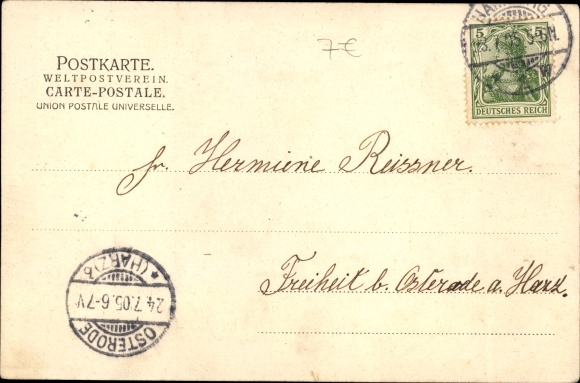 POSTKARTE.
WELTPOSTVEREIN.
CARTE-POSTALE.
UNION POSTALE UNIVERSELLE.
7€
5 5
DEUTSCHES REICH
Fr. Hermiene Reissner.
Freiheit b. Osterode a. Harz.
OSTERODE
24.7.05.6-7V
* (HARZ) b